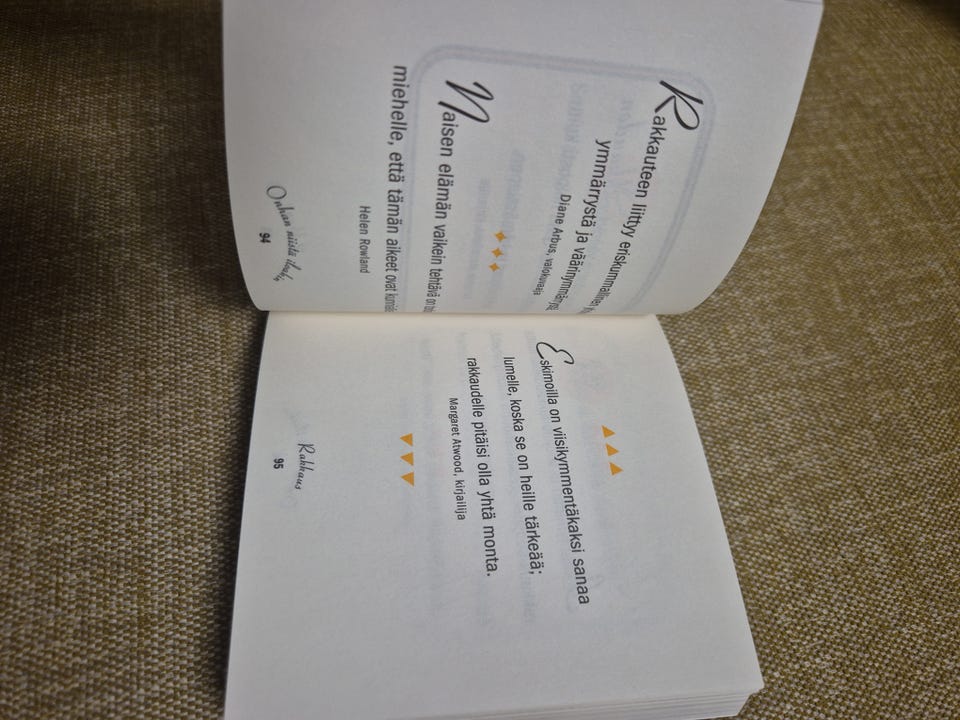 Rakkauteen liittyy eriskummallinen
ymmärrystä ja väärinymmärrystä
Diane Arbus, valokuvaaja
Naisen elämän vaikein tehtävä on
miehelle, että tämän aikeet ovat
Helen Rowland
Onhan näistä iloak
94
Eskimoilla on viisikymmentäkaksi sanaa
lumelle, koska se on heille tärkeää;
rakkaudelle pitäisi olla yhtä monta.
Margaret Atwood, kirjailija
Rakkaus
95